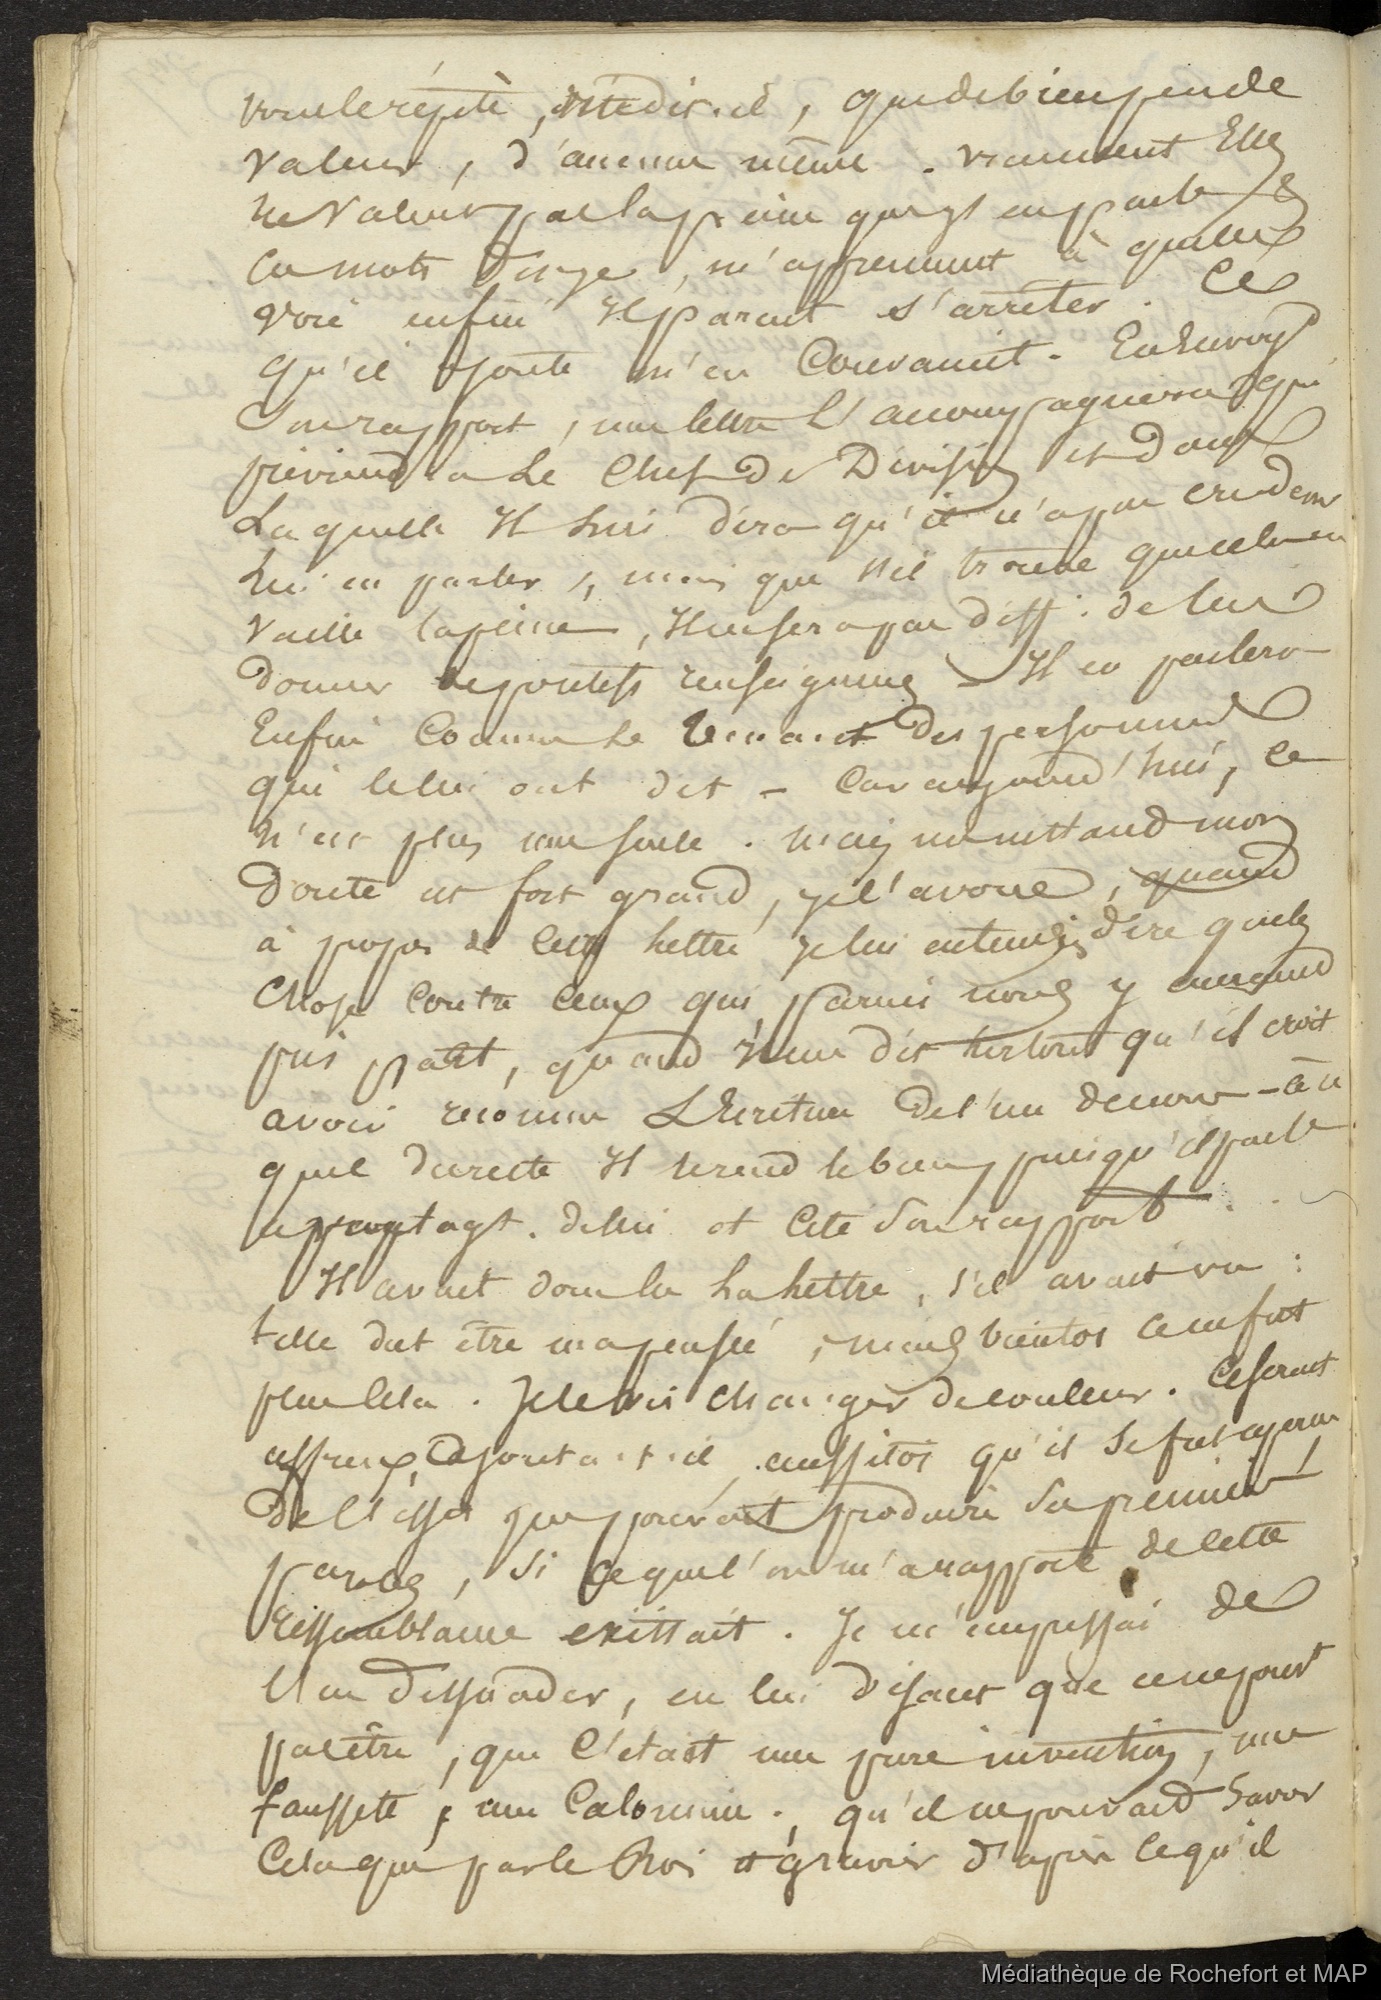 vous le répète, me dit-il, que de bien peu de
valeur, d'aucune même. vraiment Elles
ne valent pas la peine que j'en parle. &
ces mots d'inge, m'apprennent à quelle
voie enfin Il parait s'arrêter. Ce
qu'il ajoute m'en Convainct. En Envoyt
Son rapport, une lettre L'accompagnera qui
préviendra Le Chef de Division et dans
Laquelle Il lui dira qu'il n'a pas cru devoir
lui en parler, mais que s'il trouve que cela en
vaille la peine, Il ne sera pas diff. de lui
donner des renseignemens – Il en parlera
Enfin Comme le tenant des personnes
qui le lui ont dit – Car aujourd'hui, ce
n'est plus une seule. mais maintenant mon
Doute est fort grand, je l'avoue, quand
à propos de cette lettre je lui entendis dire quelq
Chose contre ceux qui parmi nous y auraient
pris part, quand Il me dit surtout qu'il croit
avoir reconnu L'Ecriture de l'un d'eux – à
quel il rend le bien puisqu'il parle
avantagt. de lui et Cite Son rapport.
Il avait donc lu La Lettre, s'il avait vu :
telle dut être ma pensée, mais bientôt ce ne fut
plus cela. Je le vis changer de couleur. Ce serait
affreux, ajouta-t-il, aussitôt qu'il se fut aperçu
De l'effet que pouvait produire Ses premières
paroles, Si ce que l'on m'a rapporté de cette
Ressemblance existait. Je m'empressai de
l'en dissuader, en lui disant que ce ne pouvt
pas être, que C'était une pure invention, une
fausseté, une Calomnie., qu'il ne pouvait Savoir
Cela que par le Roi et d'après ce qu'il
Médiathèque de Rochefort et MAP